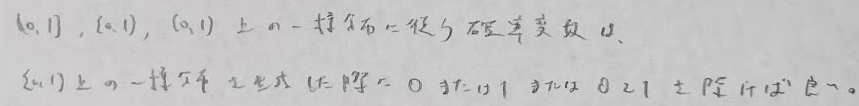 (0,1], [0,1), (0,1) 上の一様分布に従う確率変数は、
[0,1]上の一様分布を生成した際に0または1または0と1を除けば良い。